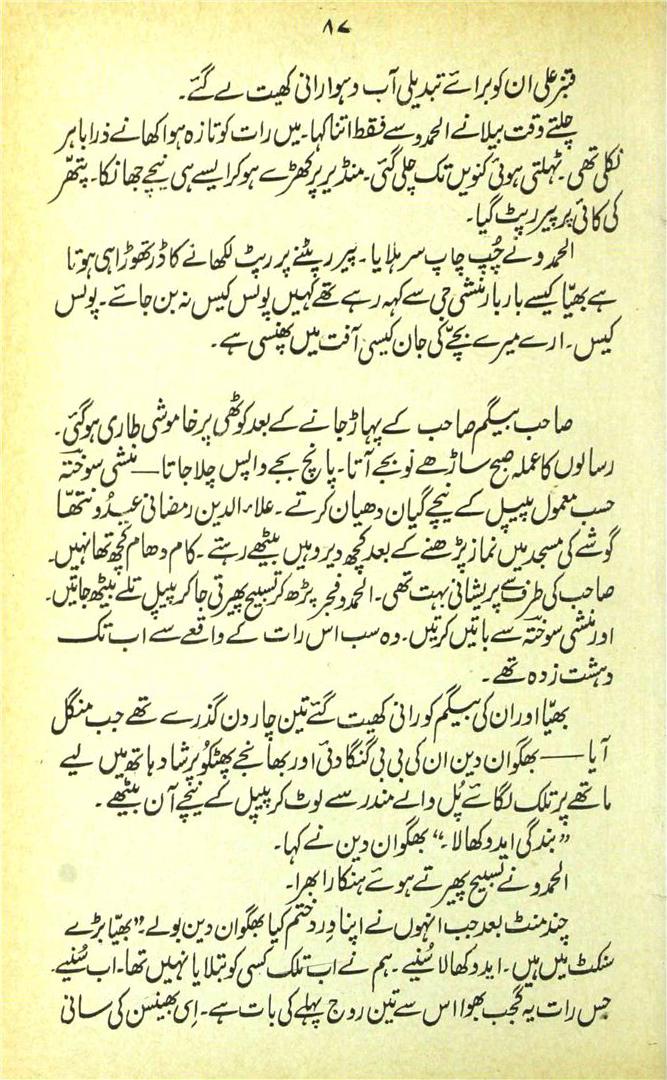 ۸۷
قنبر علی ان کو برائے تبدیلی آب و ہوا رانی کھیت لے گئے۔
چلتے وقت بیلا نے الحمدو سے فقط اتنا کہا۔ میں رات کو تازہ ہوا کھانے ذرا باہر
نکلی تھی۔ ٹہلتی ہوئی کنویں تک چلی گئی۔ منڈیر پر کھڑے ہو کر ایسے ہی نیچے جھانکا۔ پتھر
کی کائی پر پیر رپٹ گیا۔
الحمدو نے چُپ چاپ سر ہلایا۔ پیر رپٹنے پر رپٹ لکھانے کا ڈر تھوڑا ہی ہوتا
ہے بھیّا کیسے بار بار منشی جی سے کہہ رہے تھے کہیں پولس کیس نہ بن جائے۔ پولس
کیس۔ ارے میرے بچّے کی جان کیسی آفت میں پھنسی ہے۔
صاحب بیگم صاحب کے پہاڑ جانے کے بعد کوٹھی پر خاموشی طاری ہو گئی۔
رسالوں کا عملہ صبح ساڑھے نو بجے آتا۔ پانچ بجے واپس چلا جاتا — منشی سوختہ
حسب معمول پیپل کے نیچے گیان دھیان کرتے۔ علاء الدین رمضانی عیدُو نتھا
گوشے کی مسجد میں نماز پڑھنے کے بعد کچھ دیر وہیں بیٹھے رہتے۔ کام دھام کچھ تھا نہیں۔
صاحب کی طرف سے پریشانی بہت تھی۔ الحمدو فجر پڑھ کر تسبیح پھیرتی جا کر پیپل تلے بیٹھ جاتیں۔
اور منشی سوختہ سے باتیں کرتیں۔ وہ سب اس رات کے واقعے سے اب تک
دہشت زدہ تھے۔
بھیّا اور ان کی بیگم کو رانی کھیت گئے تین چار دن گذرے تھے جب منگل
آیا — بھگوان دین ان کی بی بی گنگا دئی اور بھانجے پھٹکو پرشاد ہاتھ میں لیے
ماتھے پر تلک لگائے پُل والے مندر سے لوٹ کر پیپل کے نیچے آن بیٹھے۔
”بندگی ایدو کھالا۔“ بھگوان دین نے کہا۔
الحمدو نے تسبیح پھیرتے ہوئے ہنکارا بھرا۔
چند منٹ بعد جب انہوں نے اپنا وِرد ختم کیا بھگوان دین بولے: ”بھیّا بڑے
سنکٹ میں ہیں۔ ایدو کھالا سُنیے۔ ہم نے اب تلک کسی کو بتلایا نہیں تھا۔ اب سُنیے۔
جس رات یہ گجب بھوا اس سے تین روج پہلے کی بات ہے۔ اِی بھینسن کی سانی